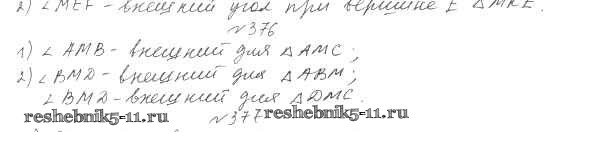 2) ∠MEF - внешний угол при вершине E △MKE.
№376
1) ∠AMB - внешний для △AMC;
2) ∠BMD - внешний для △ABM;
∠BMD - внешний для △DMC.
reshebnik5-11.ru
№377
reshebnik5-11.ru